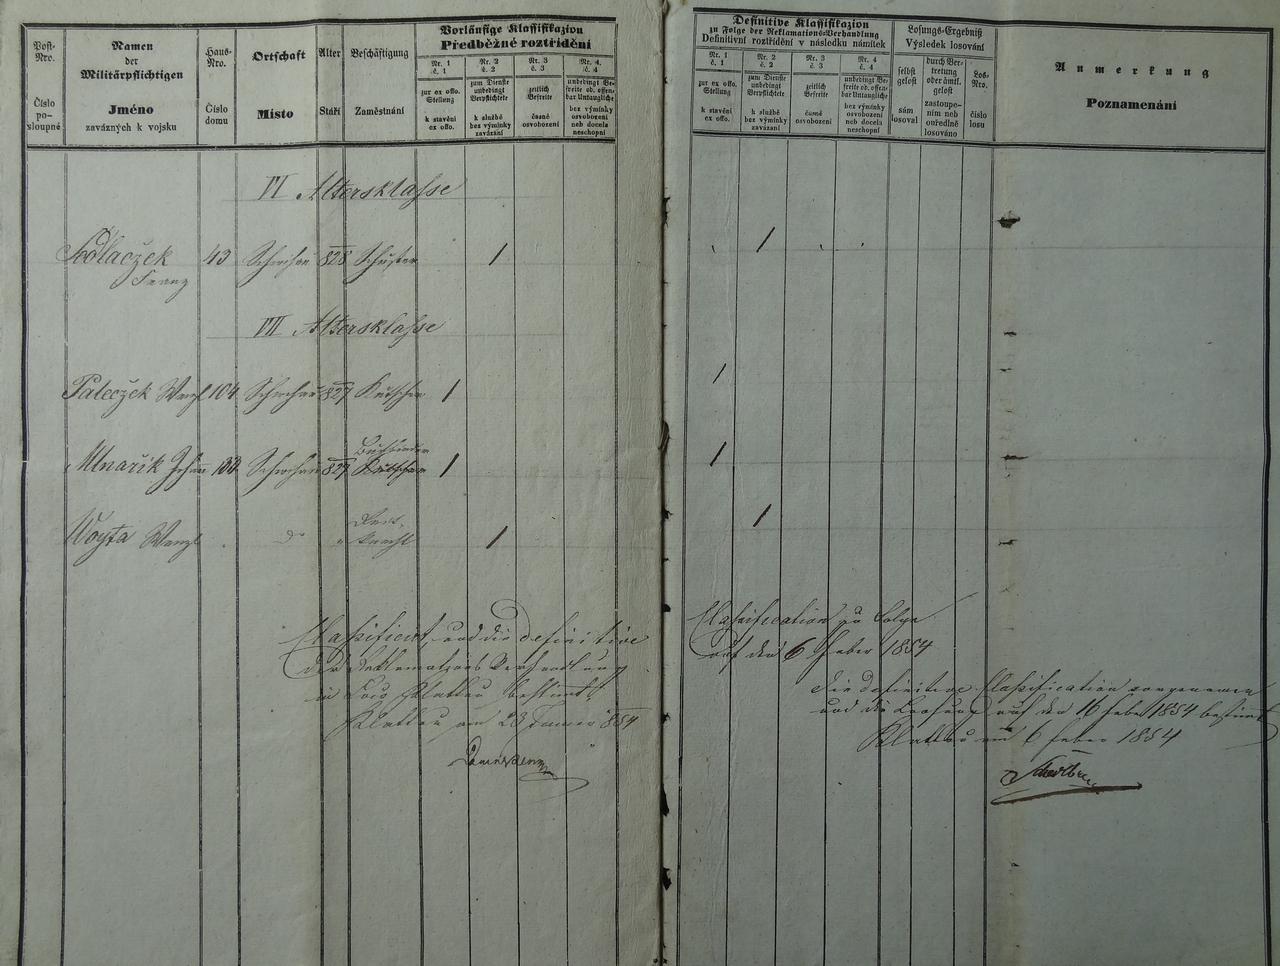 Post-Nro.
Číslo po-sloupné
Namen
der
Militärpflichtigen
Jméno
zavázných k vojsku
Haus-Nro.
Číslo domu
Ortschaft
Místo
Alter
Stáří
Beschäftigung
Zaměstnání
Vorläufige Klassifikazion
Předběžné roztřídění
Nr. 1
č. 1
zur ex offo. Stellung
k stavění ex offo.
Nr. 2
č. 2
zum Dienste unbedingt Verpflichtete
k službě bez výmínky zavázání
Nr. 3
č. 3
zeitlich Befreite
časně osvobození
Nr. 4.
č. 4
unbedingt Befreite ob. offenbar Untaugliche
bez výmínky osvobození neb docela neschopní
Definitive Klassifikazion
zu Folge der Reklamations-Verhandlung
Definitivní roztřídění v následku námitek
Nr. 1
č. 1
zur ex offo. Stellung
k stavění ex offo.
Nr. 2
č. 2
zum Dienste unbedingt Verpflichtete
k službě bez výmínky zavázání
Nr. 3
č. 3
zeitlich Befreite
časně osvobození
Nr. 4
č. 4
unbedingt Befreite ob. offenbar Untaugliche
bez výmínky osvobození neb docela neschopní
Losungs-Ergebniß
Výsledek losování
selbst gelost
sám losoval
durch Vertretung oder ämtl. gelost
zastoupením neb ouředlně losováno
Los-Nro.
číslo losu
Anmerkung
Poznamenání
VI Altersklasse
Sedlaczek Franz 43 828 Schuster 1 1
VII Altersklasse
Paleczek Wenzl 104 827 Kutscher 1 1
Mlnařik Johann 133 827 Buchbinder 1 1
Woyta Wenzl do " knecht 1 1
Classificirt, und die definitive
der Reklamazions Verhandlung
in Loco Klattau bestimmt
Klattau am 23 Jänner 854
Classification zu Folge
auf den 6 Feber 1854
Die definitive Classification vorgenommen
und die Losung auf den 16 Feber 1854 bestimmt
Klattau am 6 Feber 1854